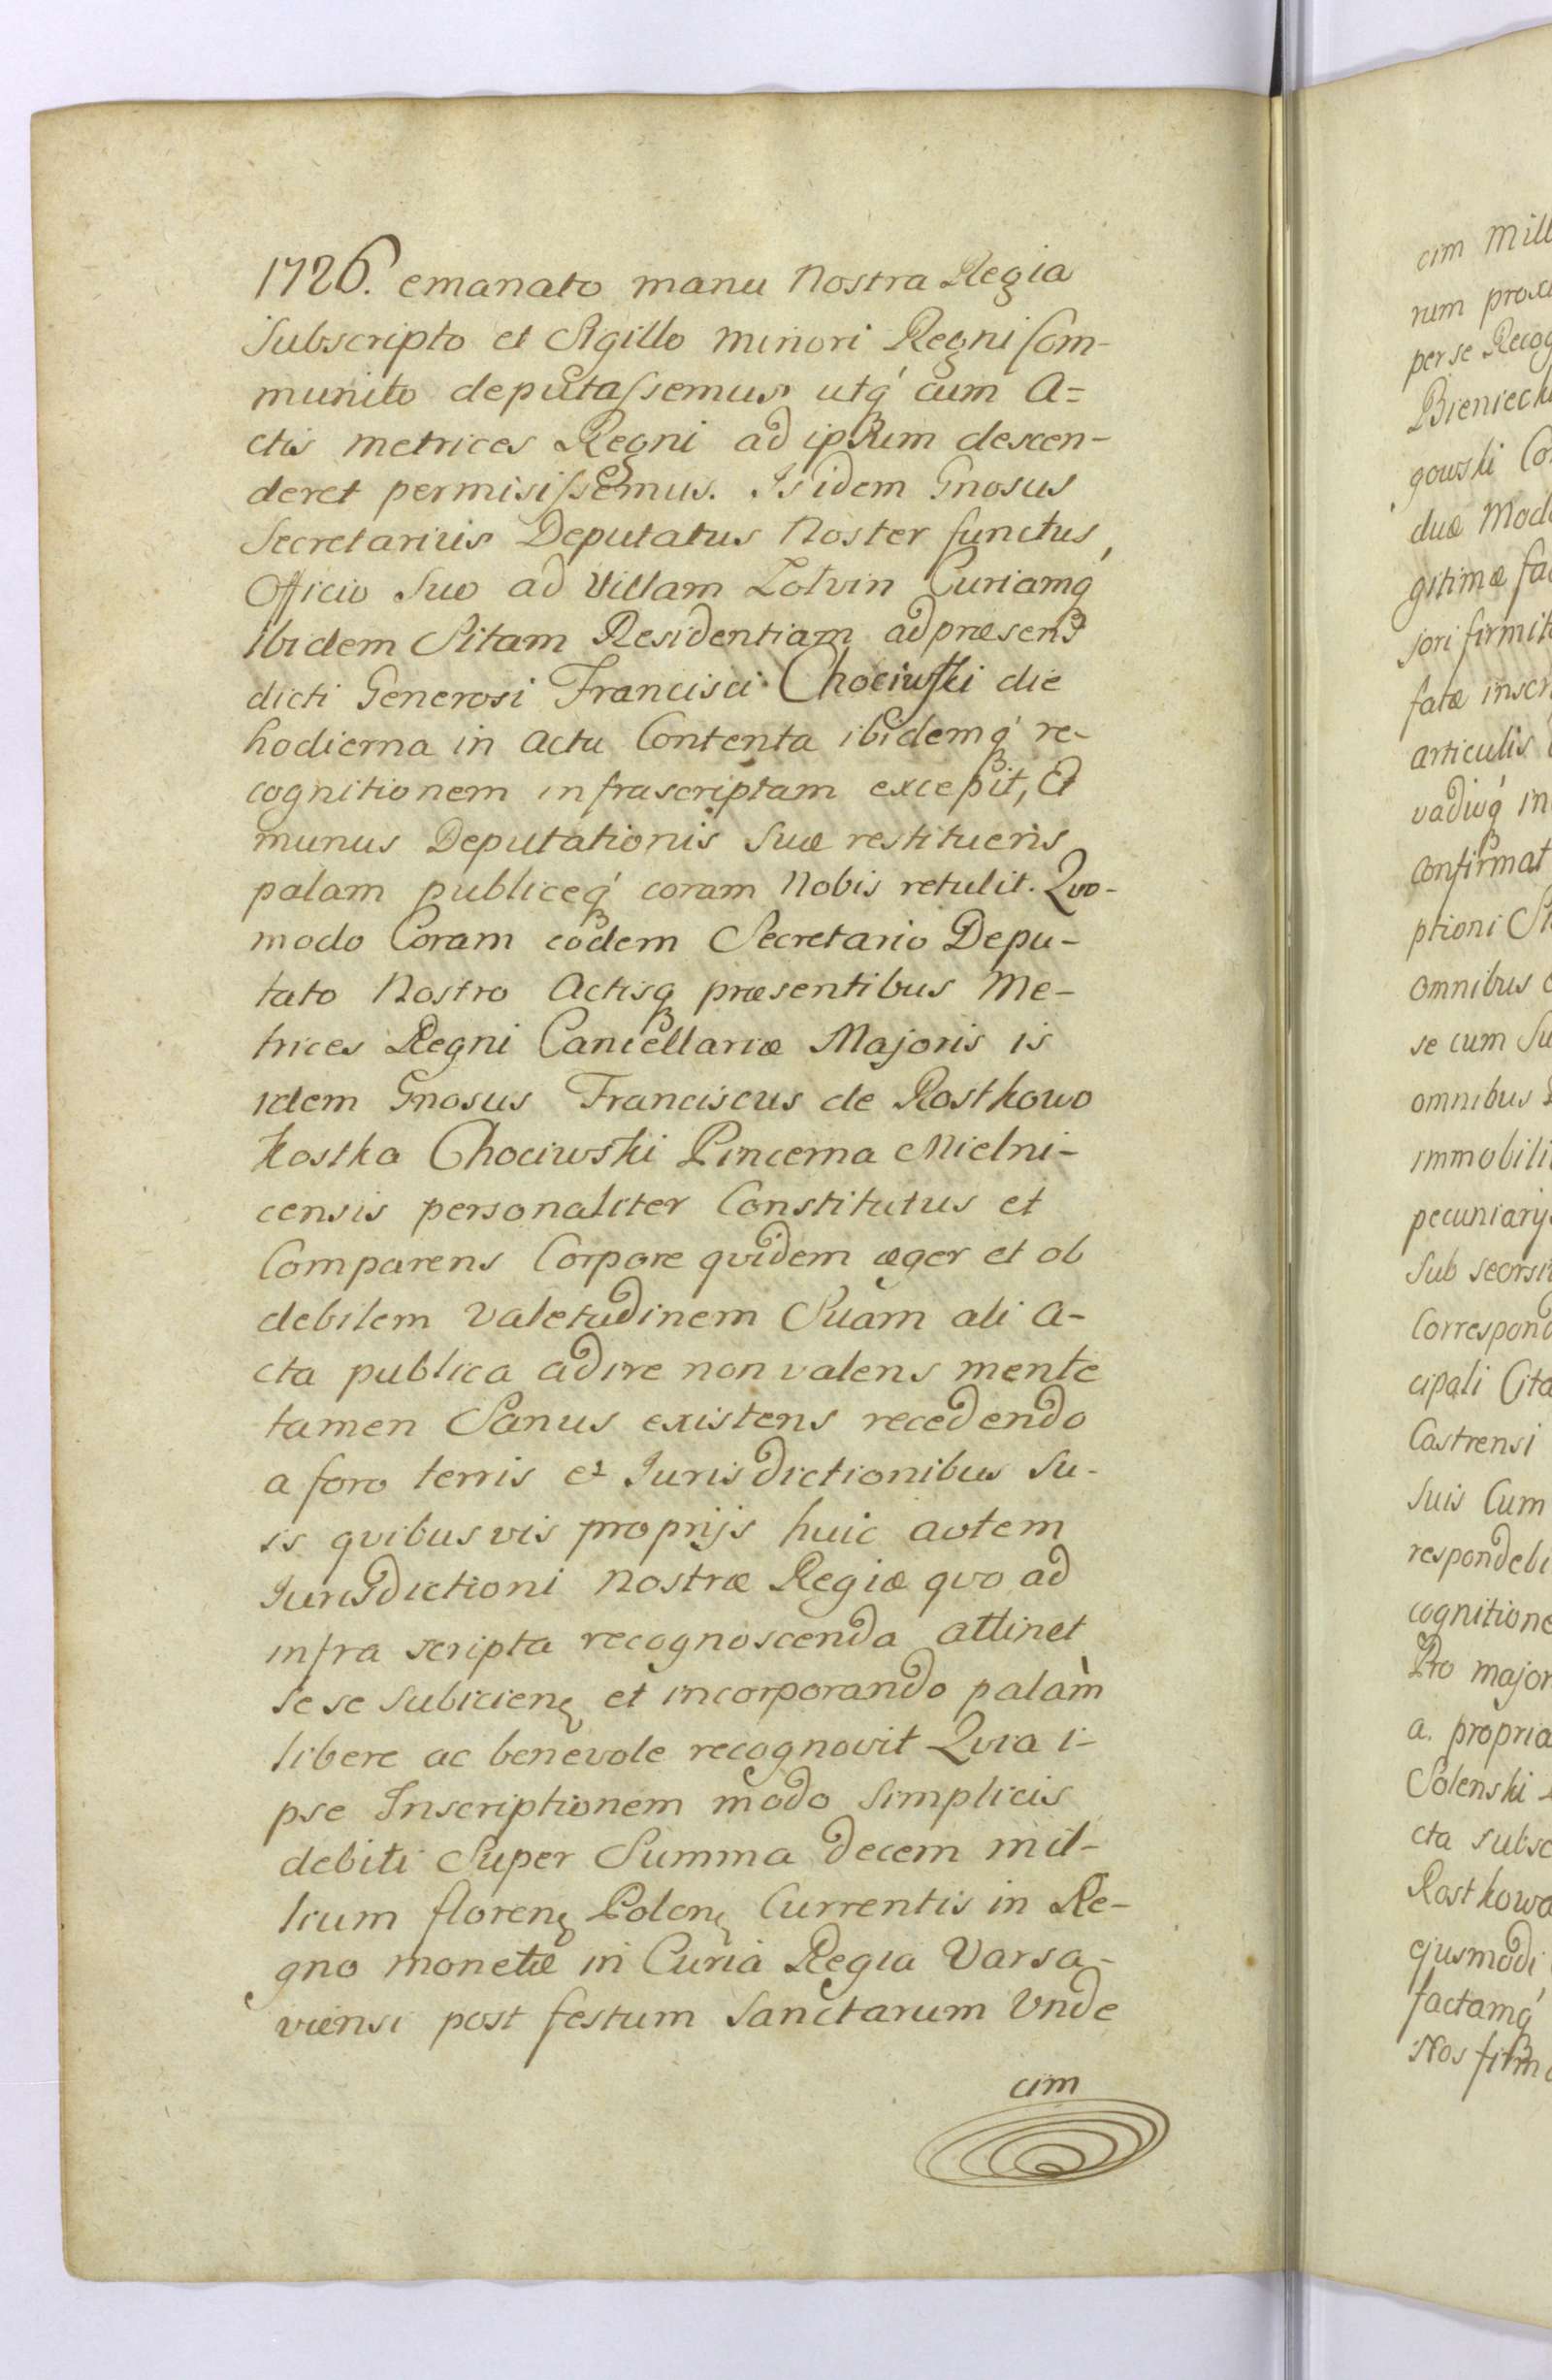 1726. emanato manu Nostra Regia
Subscripto et Sigillo minori Regni Com-
munito deputassemus utq́ cum A=
ctis metrices Regni ad ipsum descen-
deret permisissemus. Is idem Gnosus
Secretarius Deputatus Noster functus
Officio Suo ad Villam Zolvin Curiamq́
ibidem Sitam Residentiam ad præsens
dicti Generosi Francisci Chociwski die
hodierna in actu Contenta ibidemq́ re-
cognitionem infrascriptam excepit, Et
munus Deputationis Suæ restituens
palam publiceq́ coram Nobis retulit. Quo-
modo Coram eodem Secretario Depu-
tato Nostro Actisq præsentibus Me-
trices Regni Cancellariæ Majoris is
idem Gnosus Franciscus de Rostkowo
Kostka Chociwski Pincerna Mielni-
censis personaliter Constitutus et
Comparens Corpore quidem æger et ob
debilem Valetudinem Suam ali A-
cta publica adire non valens mente
tamen Sanus existens recedendo
a foro terris et Jurisdictionibus Su-
is quibus vis proprijs huic autem
Jurisdictioni Nostræ Regiæ quo ad
infra scripta recognoscenda attinet
se se Subicien et incorporando palàm
libere ac benevole recognovit Quia i-
pse Inscriptionem modo Simplicis
debiti Super Summa decem mil-
lium floren Polon Currentis in Re-
gno monetæ in Curia Regia Varsa-
viensi post festum Sanctarum Unde
cim
cim mill
rum prox
per se Recog
Bieniecki
gowski Co
duæ Modo
gitimæ fa
jori firmit
fatæ inscr
articulis
vadiuq́ in
confirmat
ptioni
omnibus
se cum Su
omnibus
immobili
pecuniarij
Sub seorsi
Correspond
cipali Cita
Castrensi
Suis Cum
respondeb
cognitione
Pro major
a. propria
Solenski
cta subsc
Rostkowo
ejusmodi
factamq́
Nos firm